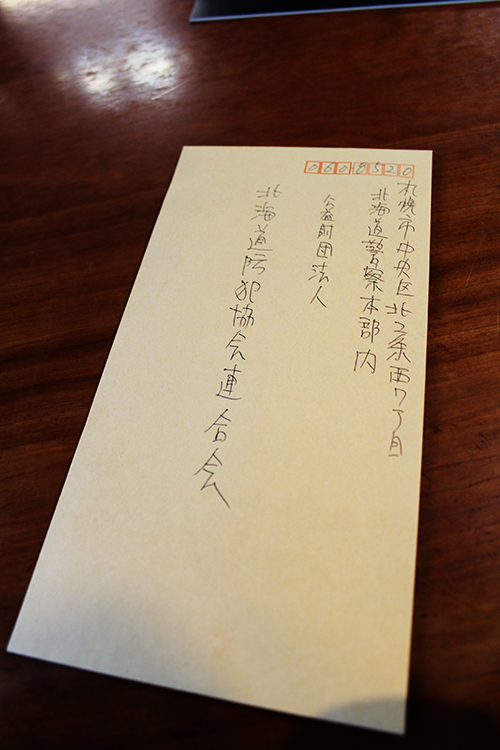 0608520
札幌市中央区北2条西7丁目
北海道警察本部内
公益財団法人
北海道防犯協会連合会